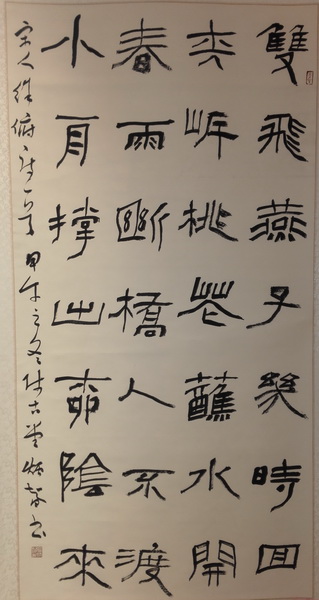 雙飛燕子幾時回
夾岸桃花蘸水開
春雨斷橋人不渡
小舟撐出柳陰來
宋人徐俯詩一首 甲午之冬 古堂 書